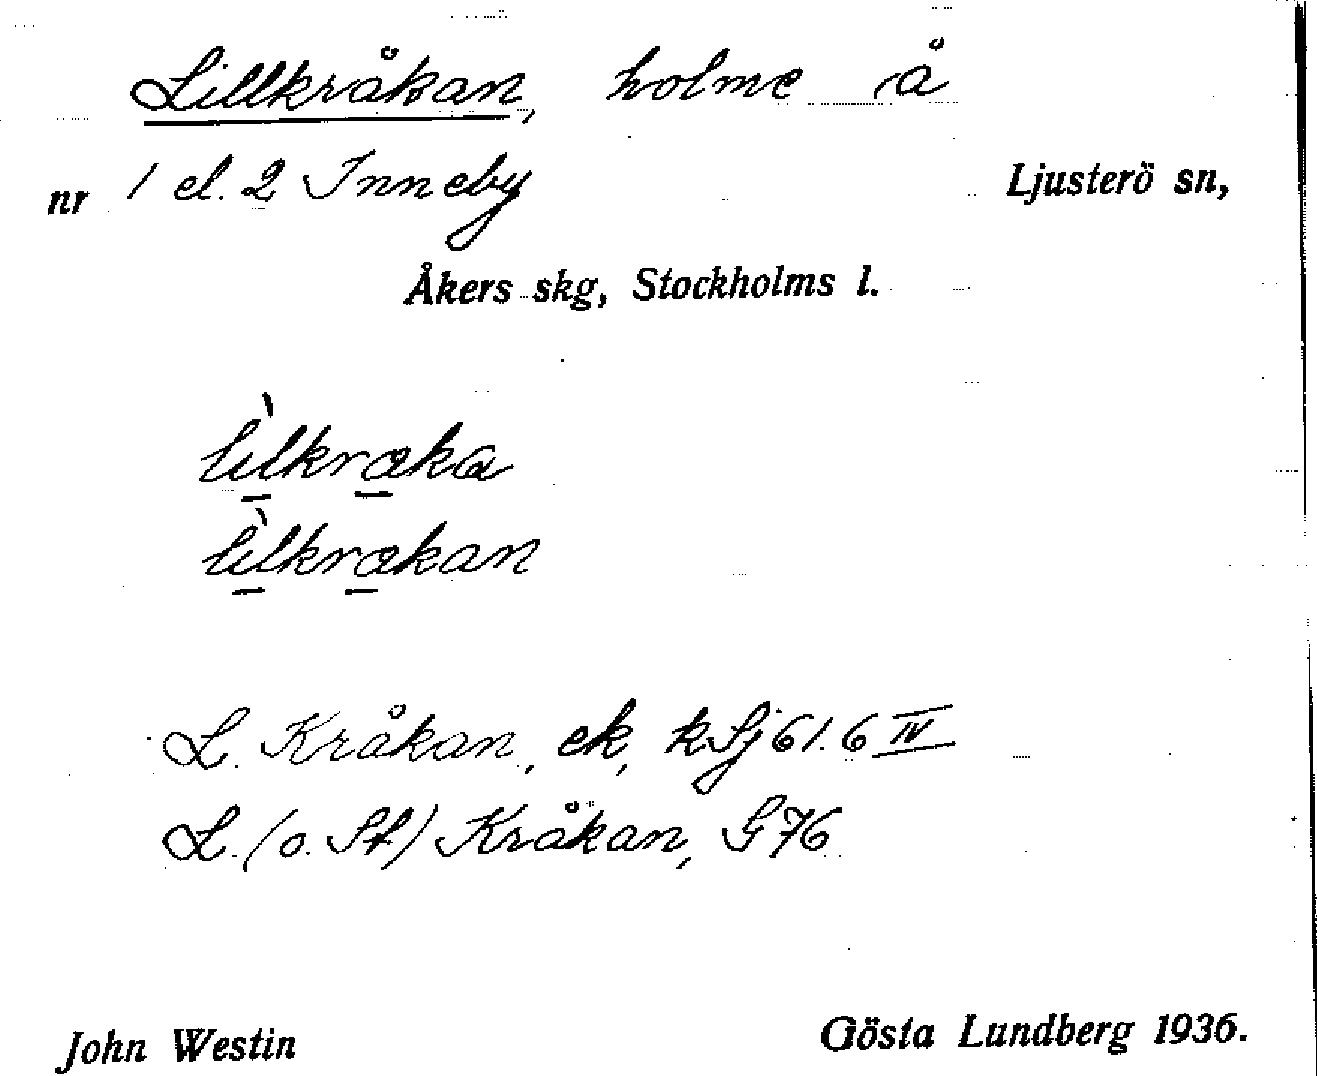 Lillkråkan, holme å
nr 1 el. 2 Inneby Ljusterö sn,
Åkers skg, Stockholms l.
lìlkraka
lìlkrakan
L. Kråkan, ek, kSj 61.6 IV
L. (o. St) Kråkan, G 76
John Westin Gösta Lundberg 1936.